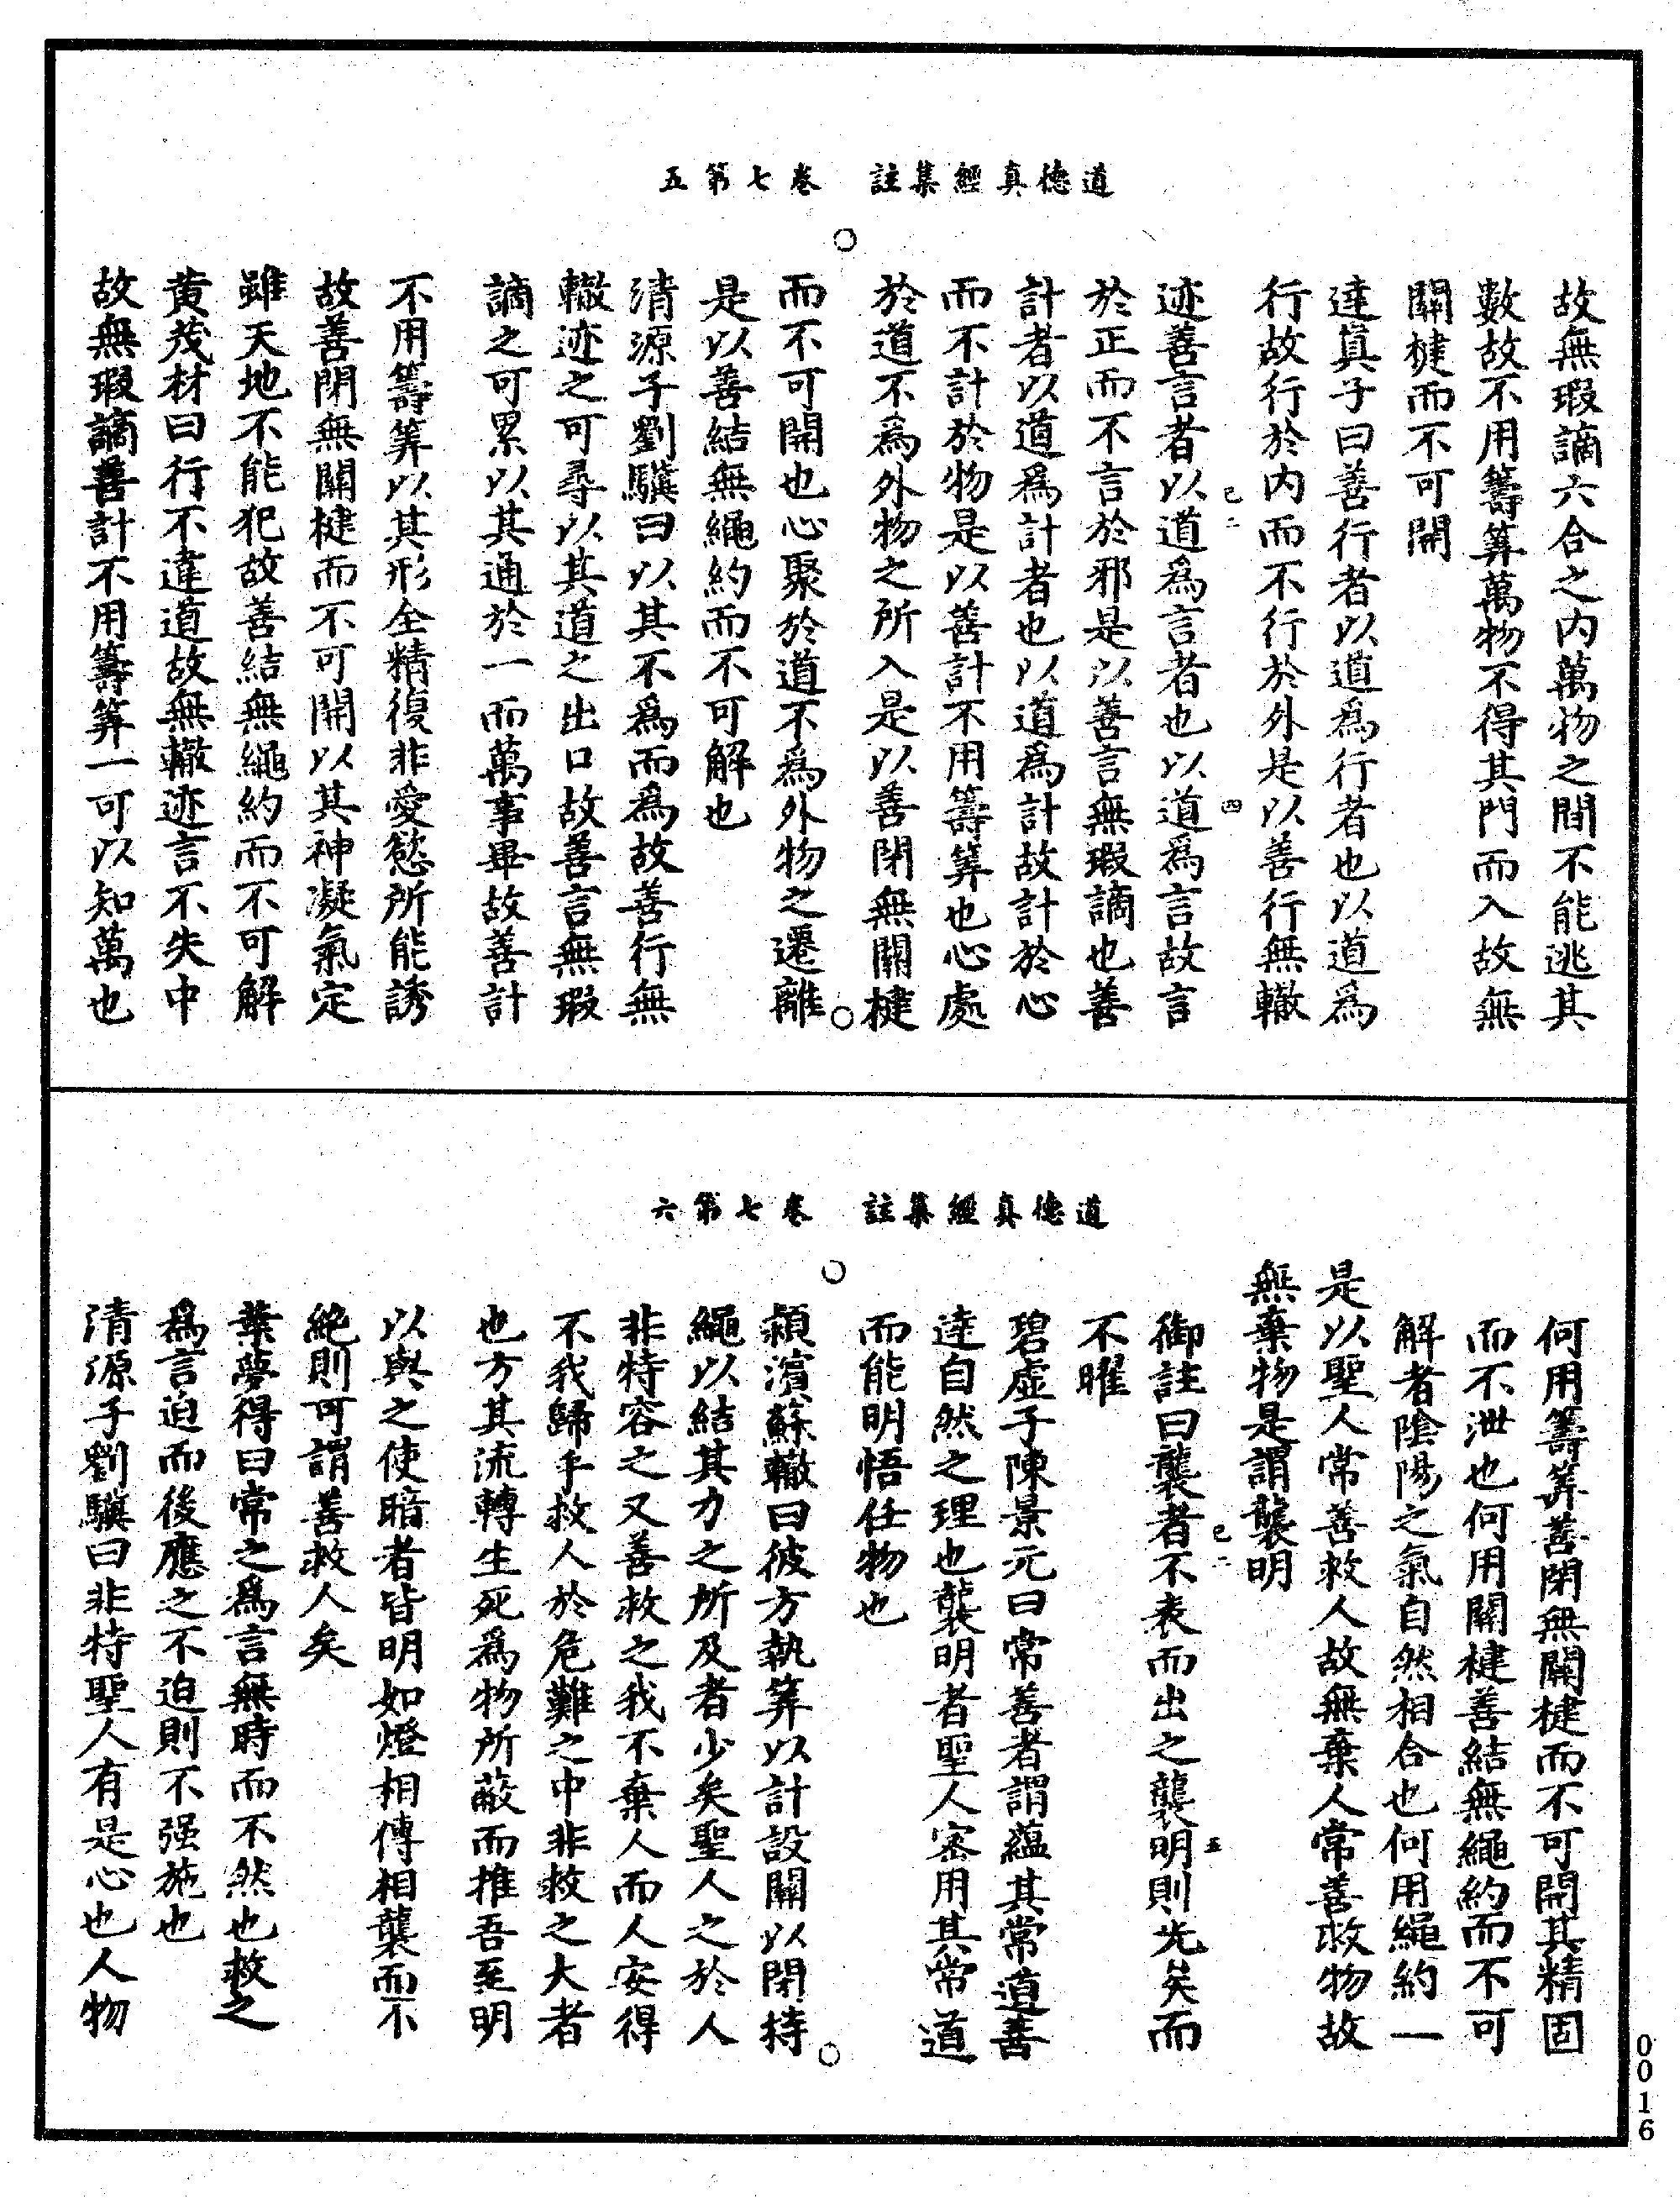 道德真經集註　卷七第五
故無瑕謫六合之内萬物之間不能逃其
數故不用籌筭萬物不得其門而入故無
關楗而不可開
達真子曰善行者以道爲行者也以道爲
行故行於内而不行於外是以善行無轍
己二　四
迹善言者以道爲言者也以道爲言故言
於正而不言於邪是以善言無瑕謫也善
計者以道爲計者也以道爲計故計於心
而不計於物是以善計不用籌筭也心處
於道不爲外物之所入是以善閉無關楗
而不可開也心聚於道不爲外物之遷離
是以善結無繩約而不可解也
清源子劉驥曰以其不爲而爲故善行無
轍迹之可尋以其道之出口故善言無瑕
謫之可累以其通於一而萬事畢故善計
不用籌筭以其形全精復非愛慾所能誘
故善閉無關楗而不可開以其神凝氣定
雖天地不能犯故善結無繩約而不可解
黄茂材曰行不違道故無轍迹言不失中
故無瑕謫善計不用籌筭一可以知萬也
道德真經集註　卷七第六
何用籌筭善閉無關楗而不可開其精固
而不泄也何用關楗善結無繩約而不可
解者陰陽之氣自然相合也何用繩約一
是以聖人常善救人故無棄人常善救物故
無棄物是謂襲明
己二　五
御註曰襲者不表而出之襲明則光矣而
不曜
碧虛子陳景元曰常善者謂藴其常道善
達自然之理也襲明者聖人密用其常道
而能明悟任物也
頴濱蘇轍曰彼方執筭以計設關以閉持
繩以結其力之所及者少矣聖人之於人
非特容之又善救之我不棄人而人安得
不我歸乎救人於危難之中非救之大者
也方其流轉生死爲物所蔽而推吾至明
以與之使暗者皆明如燈相傳相襲而不
絶則可謂善救人矣
葉夢得曰常之爲言無時而不然也救之
爲言迫而後應之不迫則不强施也
清源子劉驥曰非特聖人有是心也人物
0016